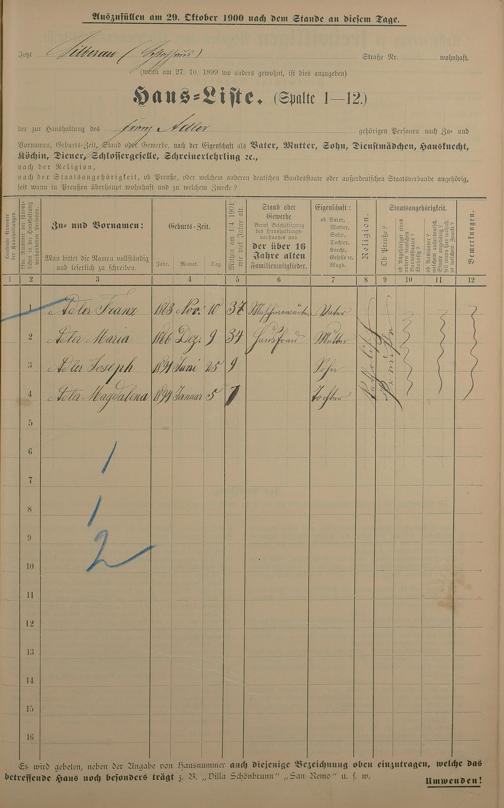 Auszufüllen am 29. Oktober 1900 nach dem Stande an diesem Tage.
Jetzt Straße Nr. wohnhaft.
(wenn am 27. 10. 1899 wo anders gewohnt, ist dies anzugeben)
Haus-Liste. (Spalte 1—12.)
der zur Haushaltung des Franz Adler gehörigen Personen nach Zu- und
Vornamen, Geburts-Zeit, Stand oder Gewerbe, nach der Eigenschaft als Vater, Mutter, Sohn, Dienstmädchen, Hausknecht,
Köchin, Diener, Schlossergeselle, Schreinerlehrling ec.,
nach der Religion,
nach der Staatsangehörigkeit, ob Preuße, oder welchem anderen deutschen Bundesstaate oder außerdeutschen Staatsverbande angehörig,
seit wann in Preußen überhaupt wohnhaft und zu welchem Zweck?
Zu- und Vornamen:
Man bittet die Namen vollständig und leserlich zu schreiben.
Geburts-Zeit.
Jahr. Monat. Tag.
Stand oder Gewerbe
der über 16 Jahre alten Familienmitglieder.
Eigenschaft:
ob Vater, Mutter, Sohn, Tochter, Knecht, Geselle u. Magd.
Religion.
Staatsangehörigkeit.
Ob Preuße?
Bemerkungen.
1 2 3 4 5 6 7 8 9 10 11 12
1 Adler Franz 1863 Nov. 10 37 Vater
2 Adler Maria 1866 Dez. 9 34 Hausfrau Mutter
3 Adler Joseph 1891 Juni 25 9 Sohn
4 Adler Magdalena 1894 Januar 5 7 Tochter
5
6
7
8
9
10
11
12
13
14
15
16
1
1
2
Es wird gebeten, neben der Angabe von Hausnummer auch diejenige Bezeichnung oben einzutragen, welche das
betreffende Haus noch besonders trägt z. B. „Villa Schönbrunn" „San Remo" u. s. w.
Umwenden!